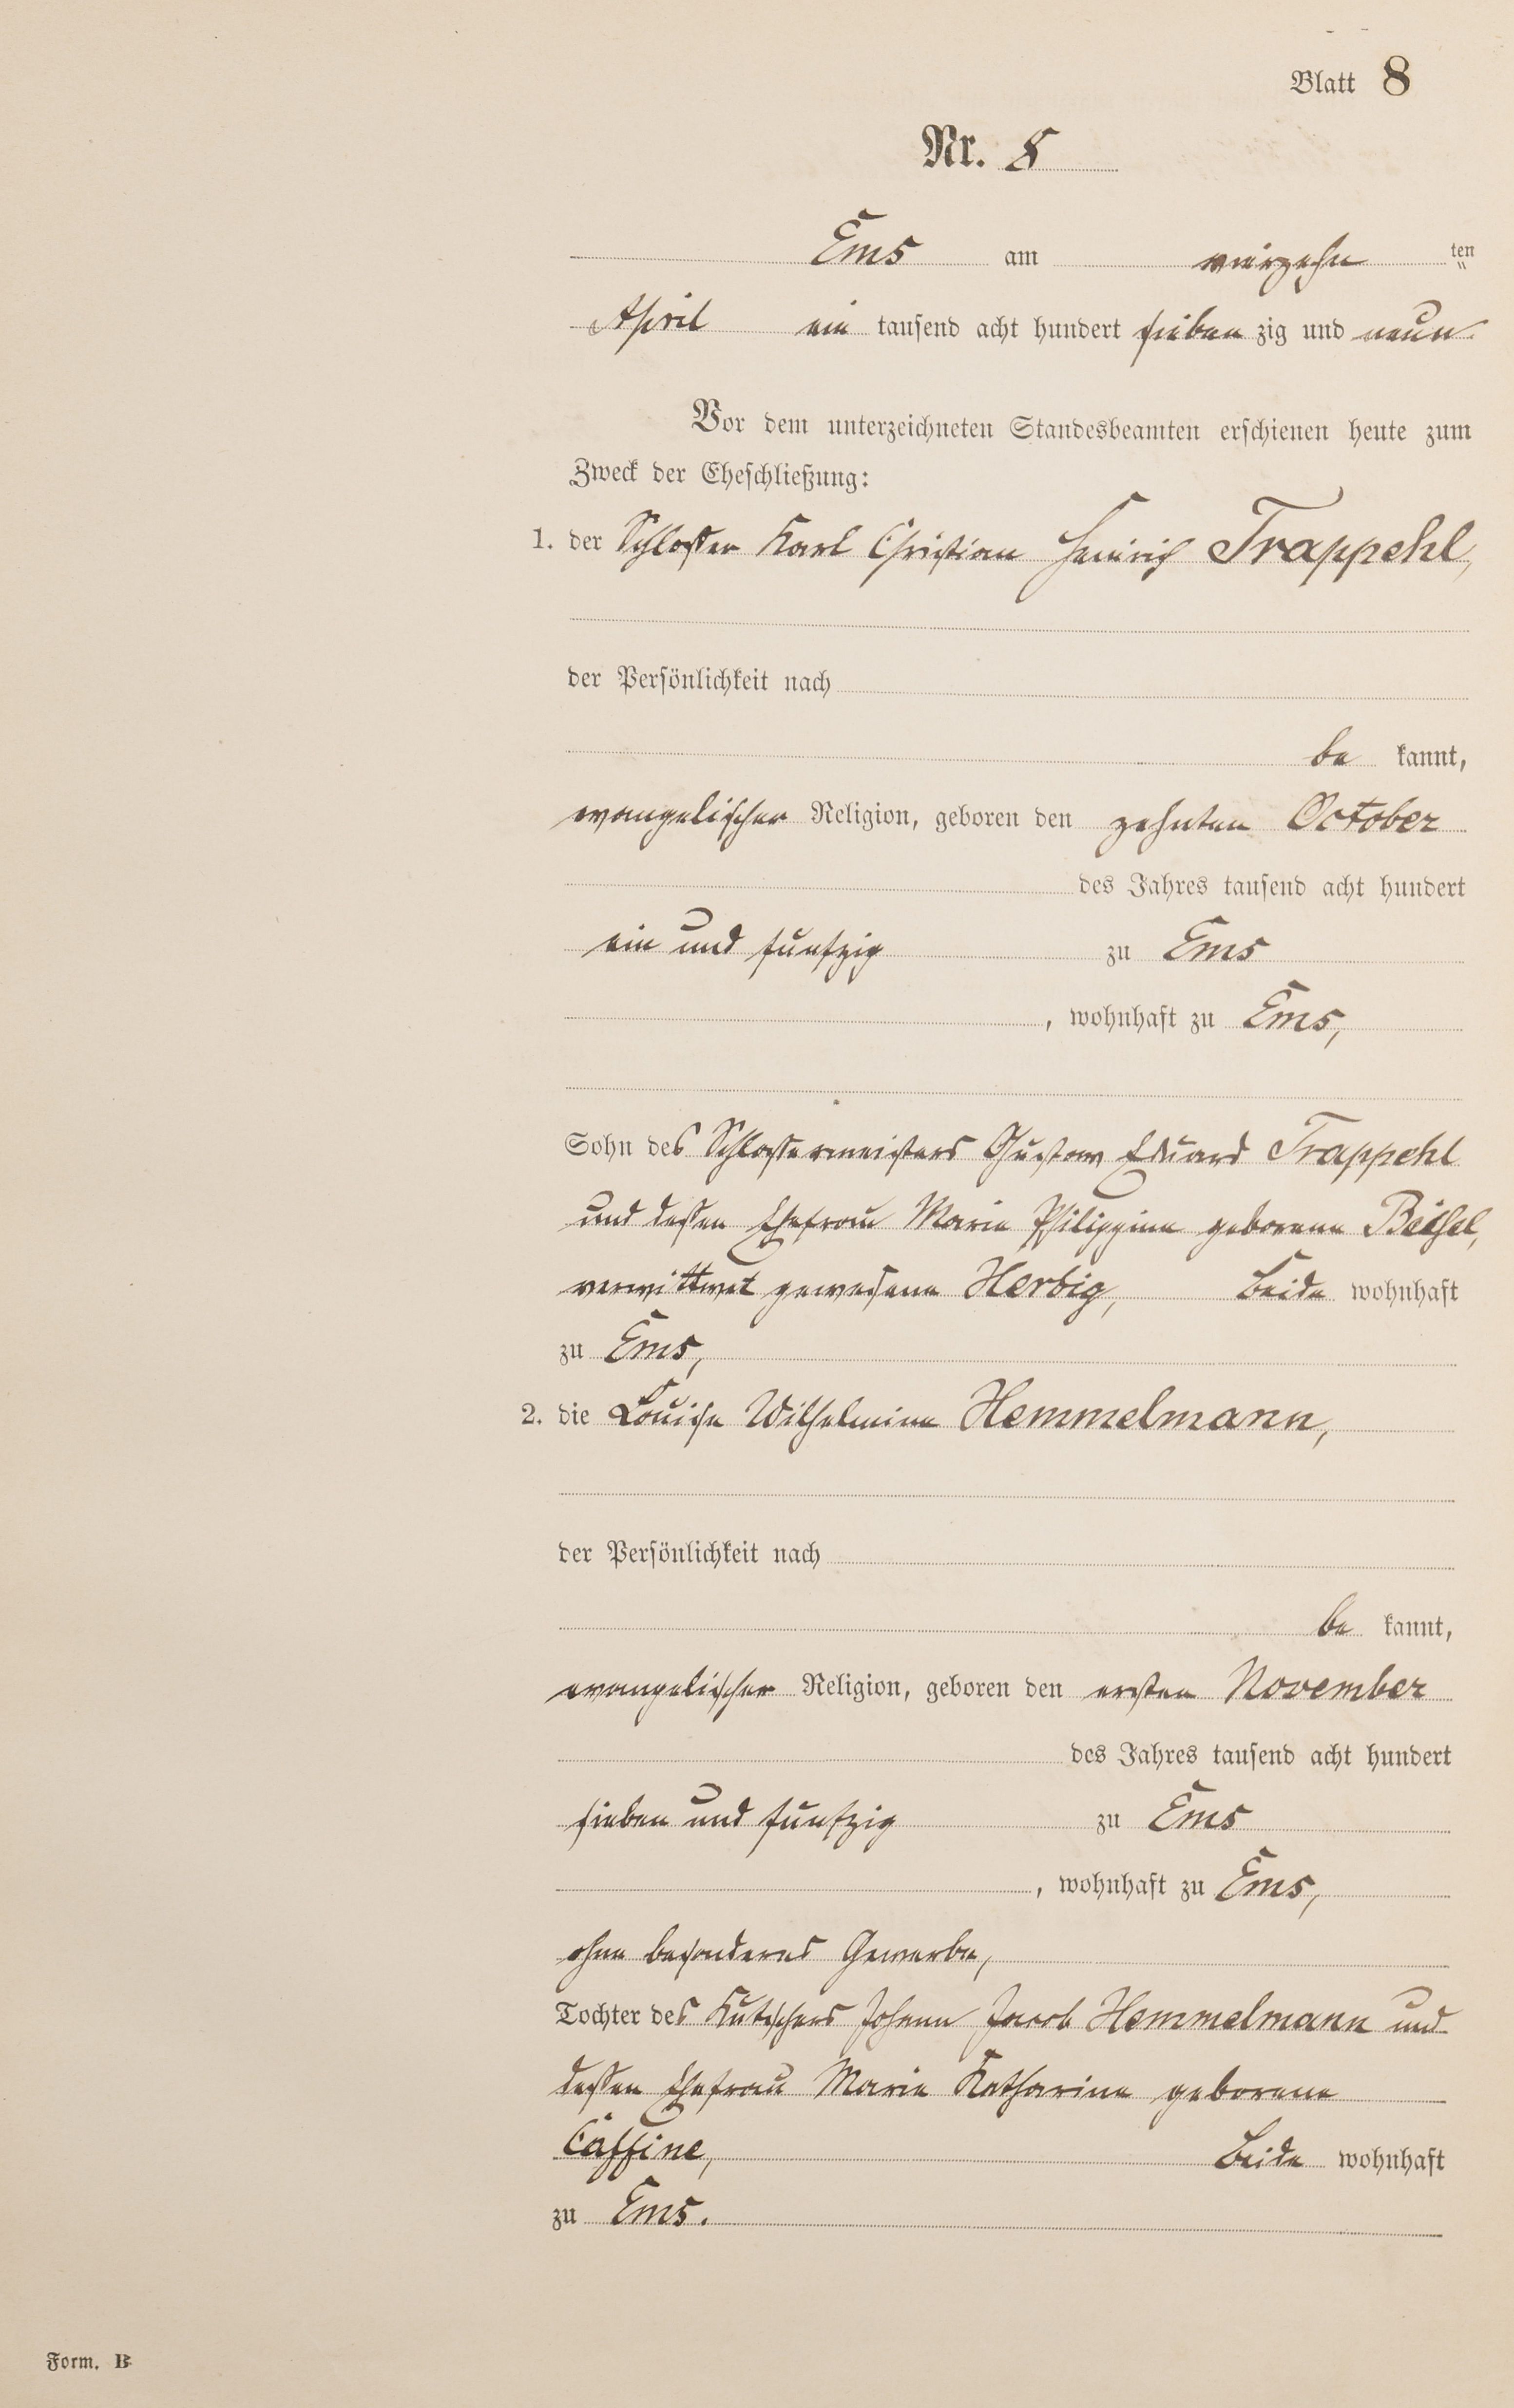 Blatt 8
Nr. 8
Ems am vierzehn ten
April ein tausend acht hundert sieben zig und neun.
Vor dem unterzeichneten Standesbeamten erschienen heute zum
Zweck der Eheschließung:
1. der Schlosser Karl Christian Heinrich Trappehl,
der Persönlichkeit nach
be kannt,
evangelischer Religion, geboren den zehnten October
des Jahres tausend acht hundert
ein und fünfzig zu Ems
, wohnhaft zu Ems,
Sohn des Schlossermeisters Gustav Eduard Trappehl
und dessen Ehefrau Marie Philippine geborene Beisel,
verwittwet gewesene Herbig, beide wohnhaft
zu Ems,
2. die Louise Wilhelmine Hemmelmann,
der Persönlichkeit nach
be kannt,
evangelischer Religion, geboren den ersten November
des Jahres tausend acht hundert
sieben und fünfzig zu Ems
, wohnhaft zu Ems,
ohne besonderes Gewerbe,
Tochter des Kutschers Johann Jacob Hemmelmann und
dessen Ehefrau Marie Katharine geborene
Cäffine, beide wohnhaft
zu Ems.
Form. B